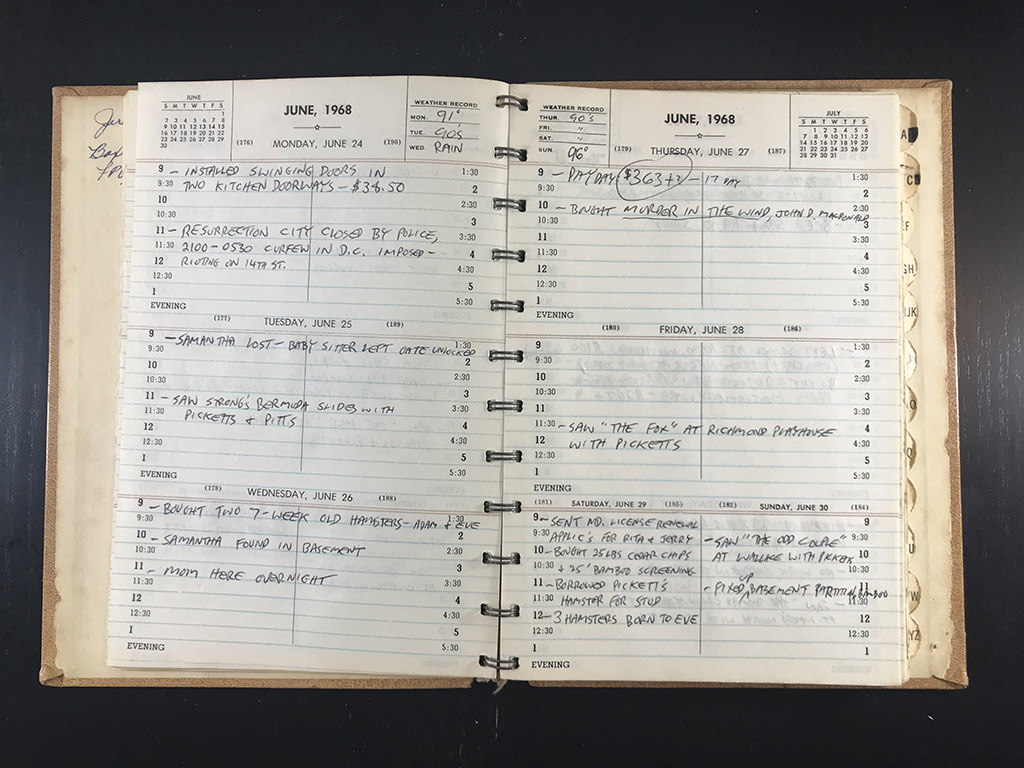 Jer
JUNE
S M T W T F S
1
2 3 4 5 6 7 8
9 10 11 12 13 14 15
16 17 18 19 20 21 22
23 24 25 26 27 28 29
30
JUNE, 1968
(176) MONDAY, JUNE 24 (190)
WEATHER RECORD
MON. 91°
TUE. 90s
WED. RAIN
9 – INSTALLED SWINGING DOORS IN 1:30
9:30 TWO KITCHEN DOORWAYS – $38.50 2
10 2:30
10:30 3
11 – RESURRECTION CITY CLOSED BY POLICE, 3:30
11:30 2100-0530 CURFEW IN D.C. IMPOSED – 4
12 RIOTING ON 14TH ST. 4:30
12:30 5
1 5:30
EVENING
(177) TUESDAY, JUNE 25 (189)
9 – SAMANTHA LOST – BABY SITTER LEFT GATE UNLOCKED 1:30
9:30 2
10 2:30
10:30 3
11 – SAW STRONG'S BERMUDA SLIDES WITH 3:30
11:30 PICKETTS & PITTS 4
12 4:30
12:30 5
1 5:30
EVENING
(178) WEDNESDAY, JUNE 26 (188)
9 – BOUGHT TWO 7-WEEK OLD HAMSTERS – ADAM & EVE 1:30
9:30 2
10 – SAMANTHA FOUND IN BASEMENT 2:30
10:30 3
11 – MOM HERE OVERNIGHT 3:30
11:30 4
12 4:30
12:30 5
1 5:30
EVENING
WEATHER RECORD
THUR. 90's
FRI. "
SAT. "
SUN. 96°
JUNE, 1968
(179) THURSDAY, JUNE 27 (187)
JULY
S M T W T F S
1 2 3 4 5 6
7 8 9 10 11 12 13
14 15 16 17 18 19 20
21 22 23 24 25 26 27
28 29 30 31
9 – PAYDAY $363 – 17 PAY 1:30
9:30 2
10 – BOUGHT MURDER IN THE WIND, JOHN D. MACDONALD 2:30
10:30 3
11 3:30
11:30 4
12 4:30
12:30 5
1 5:30
EVENING
(180) FRIDAY, JUNE 28 (186)
9 1:30
9:30 2
10 2:30
10:30 3
11 3:30
11:30 – SAW "THE FOX" AT RICHMOND PLAYHOUSE 4
12 WITH PICKETTS 4:30
12:30 5
1 5:30
EVENING
(181) SATURDAY, JUNE 29 (185) (182) SUNDAY, JUNE 30 (184)
9 – SENT MD. LICENSE RENEWAL 9
9:30 APPLIC'S FOR RITA & JERRY – SAW "THE ODD COUPLE" 9:30
10 – BOUGHT 25 LBS CEDAR CHIPS AT WALLKE WITH PICKETTS 10
10:30 + 25' BAMBOO SCREENING 10:30
11 – BORROWED PICKETT'S – FIXED UP BASEMENT PARTITION, BAMBOO 11
11:30 HAMSTER FOR STUD 11:30
12 – 3 HAMSTERS BORN TO EVE 12
12:30 12:30
1 1
EVENING
A
C
EF
GH
IJK
O
Q
U
W
YZ